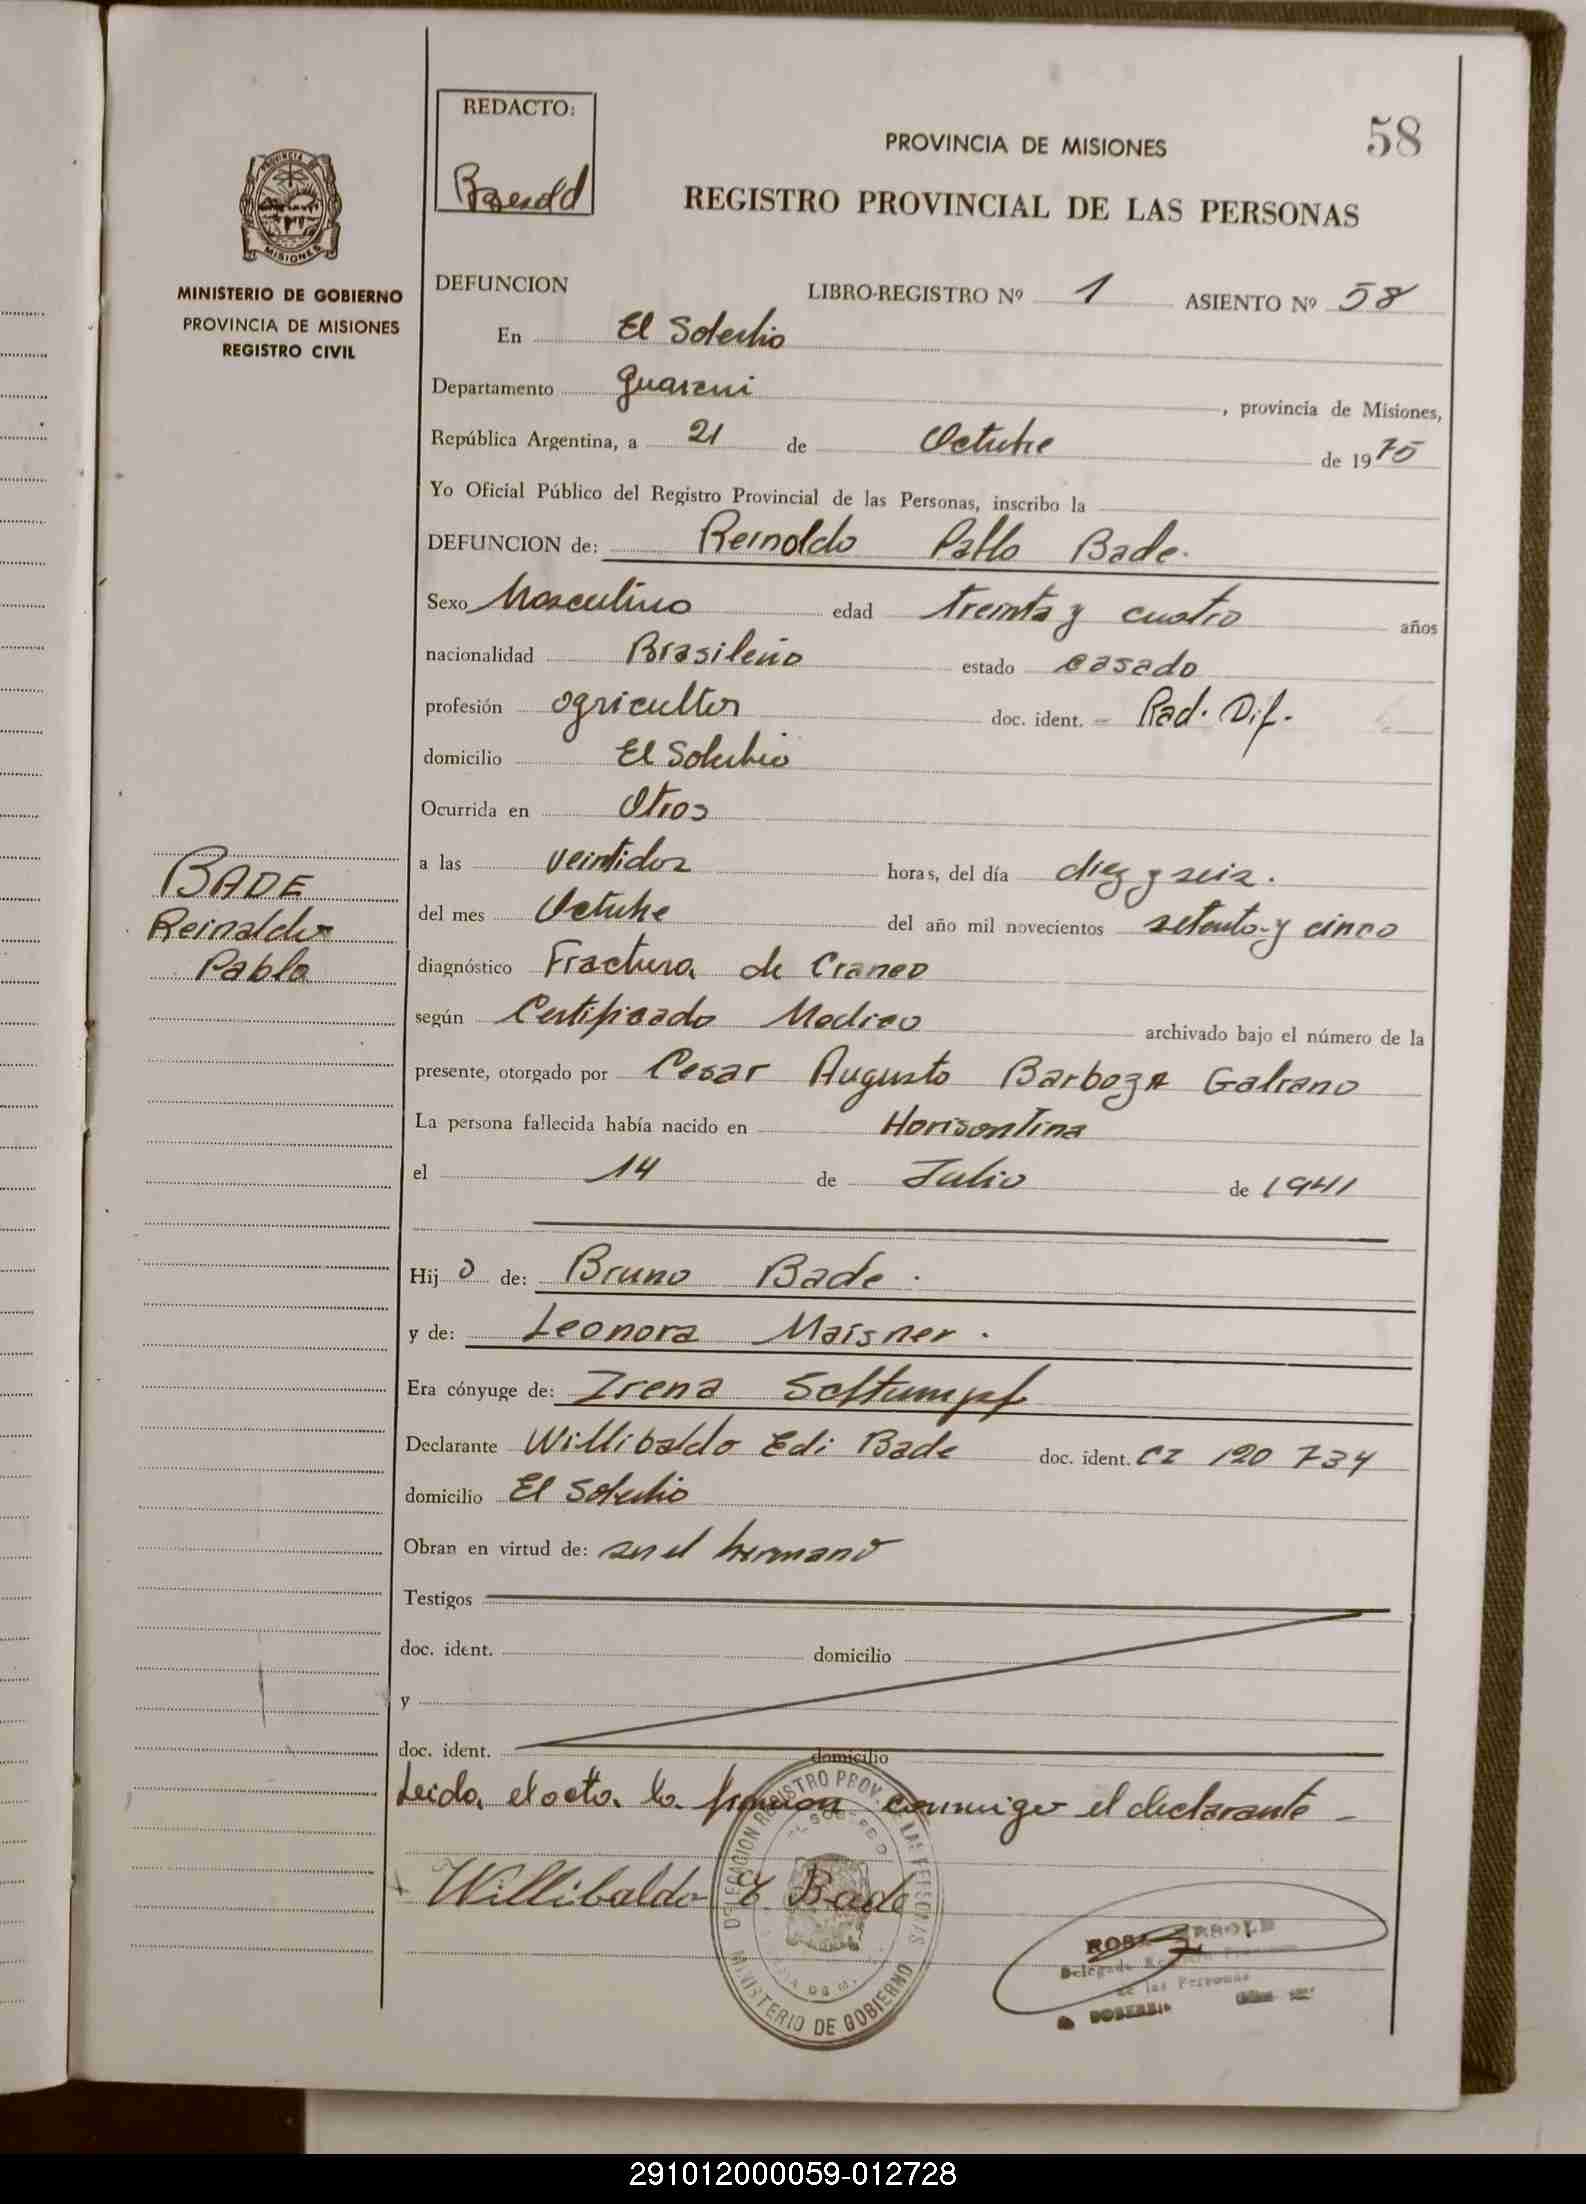 58
REDACTO:
PROVINCIA DE MISIONES
REGISTRO PROVINCIAL DE LAS PERSONAS
PROVINCIA DE
MISIONES
MINISTERIO DE GOBIERNO
PROVINCIA DE MISIONES
REGISTRO CIVIL
DEFUNCION LIBRO-REGISTRO Nº 1 ASIENTO Nº 58
En El Soberbio
Departamento Guarani, provincia de Misiones,
República Argentina, a 21 de Octubre de 1975
Yo Oficial Público del Registro Provincial de las Personas, inscribo la
DEFUNCION de: Reinoldo Pablo Bade.
Sexo Masculino edad treinta y cuatro años
nacionalidad Brasileño estado casado
profesión agricultor doc. ident. - Rad. Dif.
domicilio El Soberbio
Ocurrida en Otros
a las veintidos horas, del día diez y seis.
del mes Octubre del año mil novecientos setenta y cinco
diagnóstico Fractura de Craneo
según Certificado Medico archivado bajo el número de la
presente, otorgado por Cesar Augusto Barboza Galeano
La persona fallecida había nacido en Horisontina
el 14 de Julio de 1941
Hijo de: Bruno Bade.
y de: Leonora Maisner.
Era cónyuge de: Irena Schtumpf
Declarante Willibaldo Edi Bade doc. ident. CI 120 734
domicilio El Soberbio
Obran en virtud de: ser el hermano
Testigos
doc. ident. domicilio
y
doc. ident. domicilio
Leida el acta la firman conmigo el declarante -
Willibaldo E. Bade
BADE
Reinaldo
Pablo
DELEGACION REGISTRO PROV. LAS PERSONAS
MINISTERIO DE GOBIERNO
de las Personas
SOBERBIO
291012000059-012728